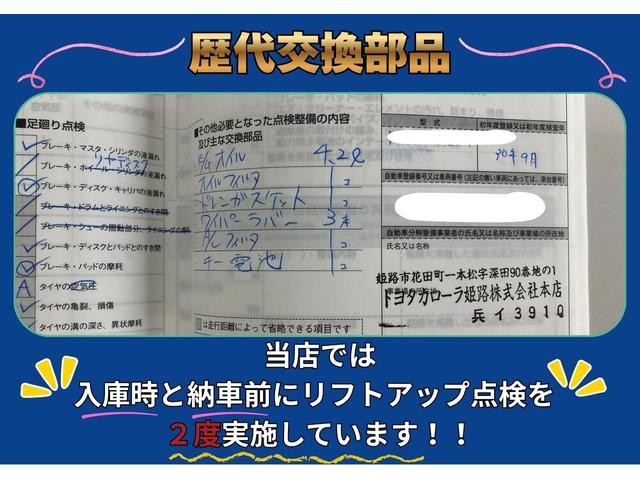 歴代交換部品
■足廻り点検
ブレーキ・マスタ・シリンダの液漏れ
リヤディスク
ブレーキ・ホイール・シリンダの液漏れ
ブレーキ・ディスク・キャリパの液漏れ
ブレーキ・ドラムとライニングとのすき間
ブレーキ・シューの摺動部分、ライニングの摩耗
ブレーキ・ディスクとパッドとのすき間
ブレーキ・パッドの摩耗
タイヤの空気圧
タイヤの亀裂、損傷
タイヤの溝の深さ、異状摩耗
■その他必要となった点検整備の内容
及び主な交換部品
E/gオイル 4.2ℓ
オイルフィルタ 1コ
ドレンガスケット 1コ
ワイパーラバー 3本
A/cフィルタ 1コ
キー電池 1コ
は走行距離によって省略できる項目です
型式
初年度登録又は初年度検査年
30年9月
自動車登録番号又は車両番号(左記の無い車両にあっては、車台番号)
自動車分解整備事業者の氏名又は名称及び事業場の所在地
氏名又は名称
姫路市花田町一本松字深田90番地の1
トヨタカローラ姫路株式会社本店
兵イ3910
当店では
入庫時と納車前にリフトアップ点検を
2度実施しています!!